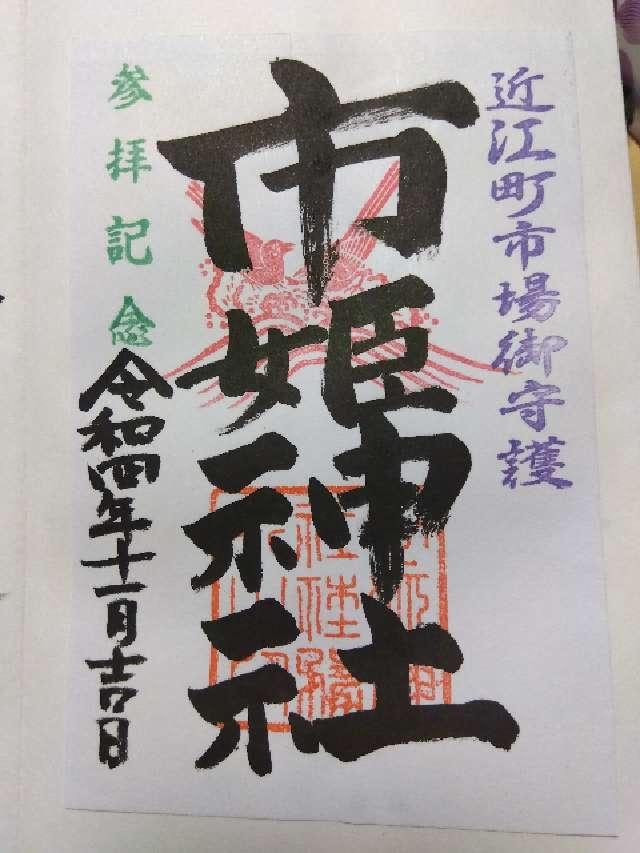 近江町市場御守護
市姫神社
参拝記念
令和四年十一月吉日